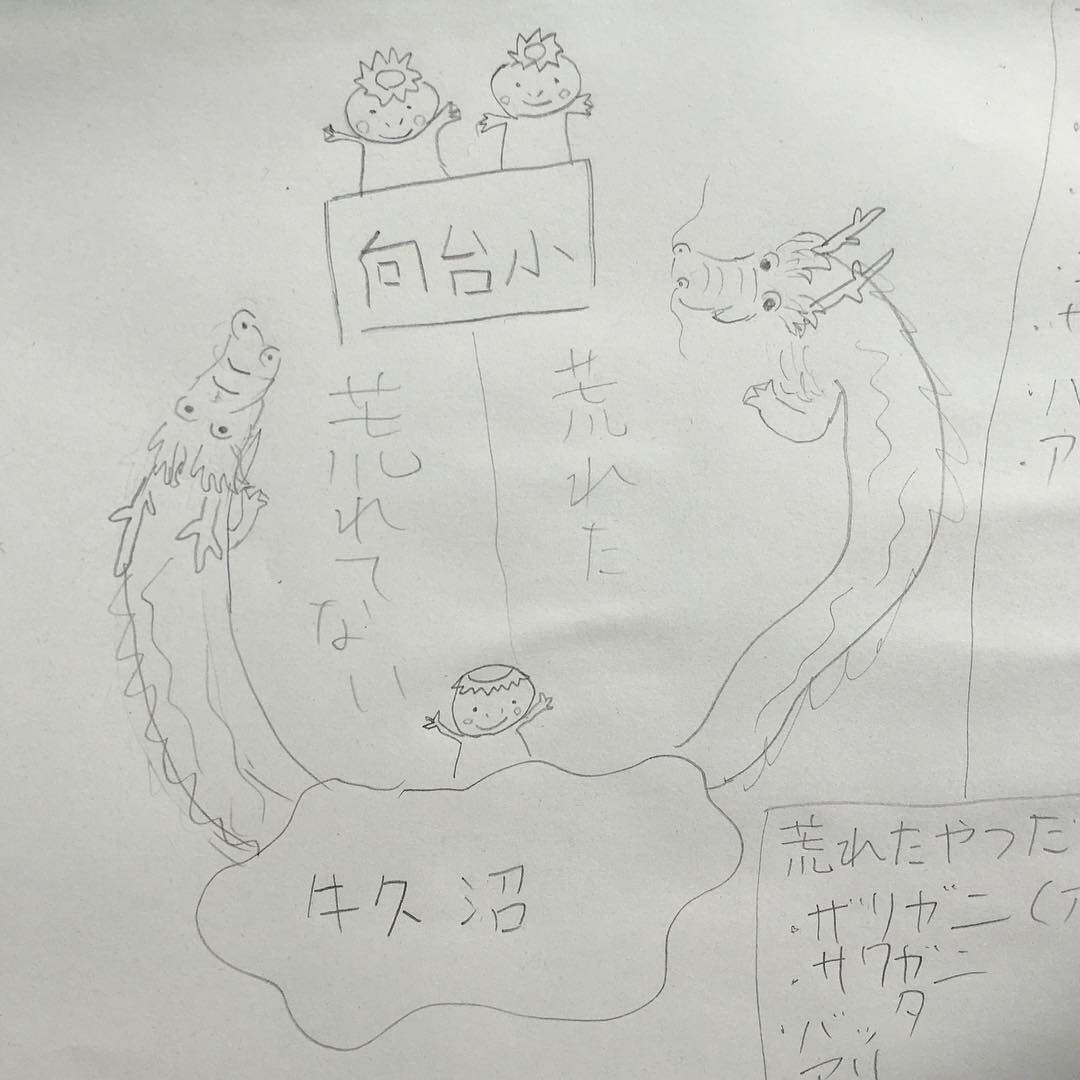 向台小
荒れた
荒れてない
牛久沼
荒れたやつだ
・ザリガニ(ア
・サワガニ
・バッタ
アリ
・サ
・ハ
・ア